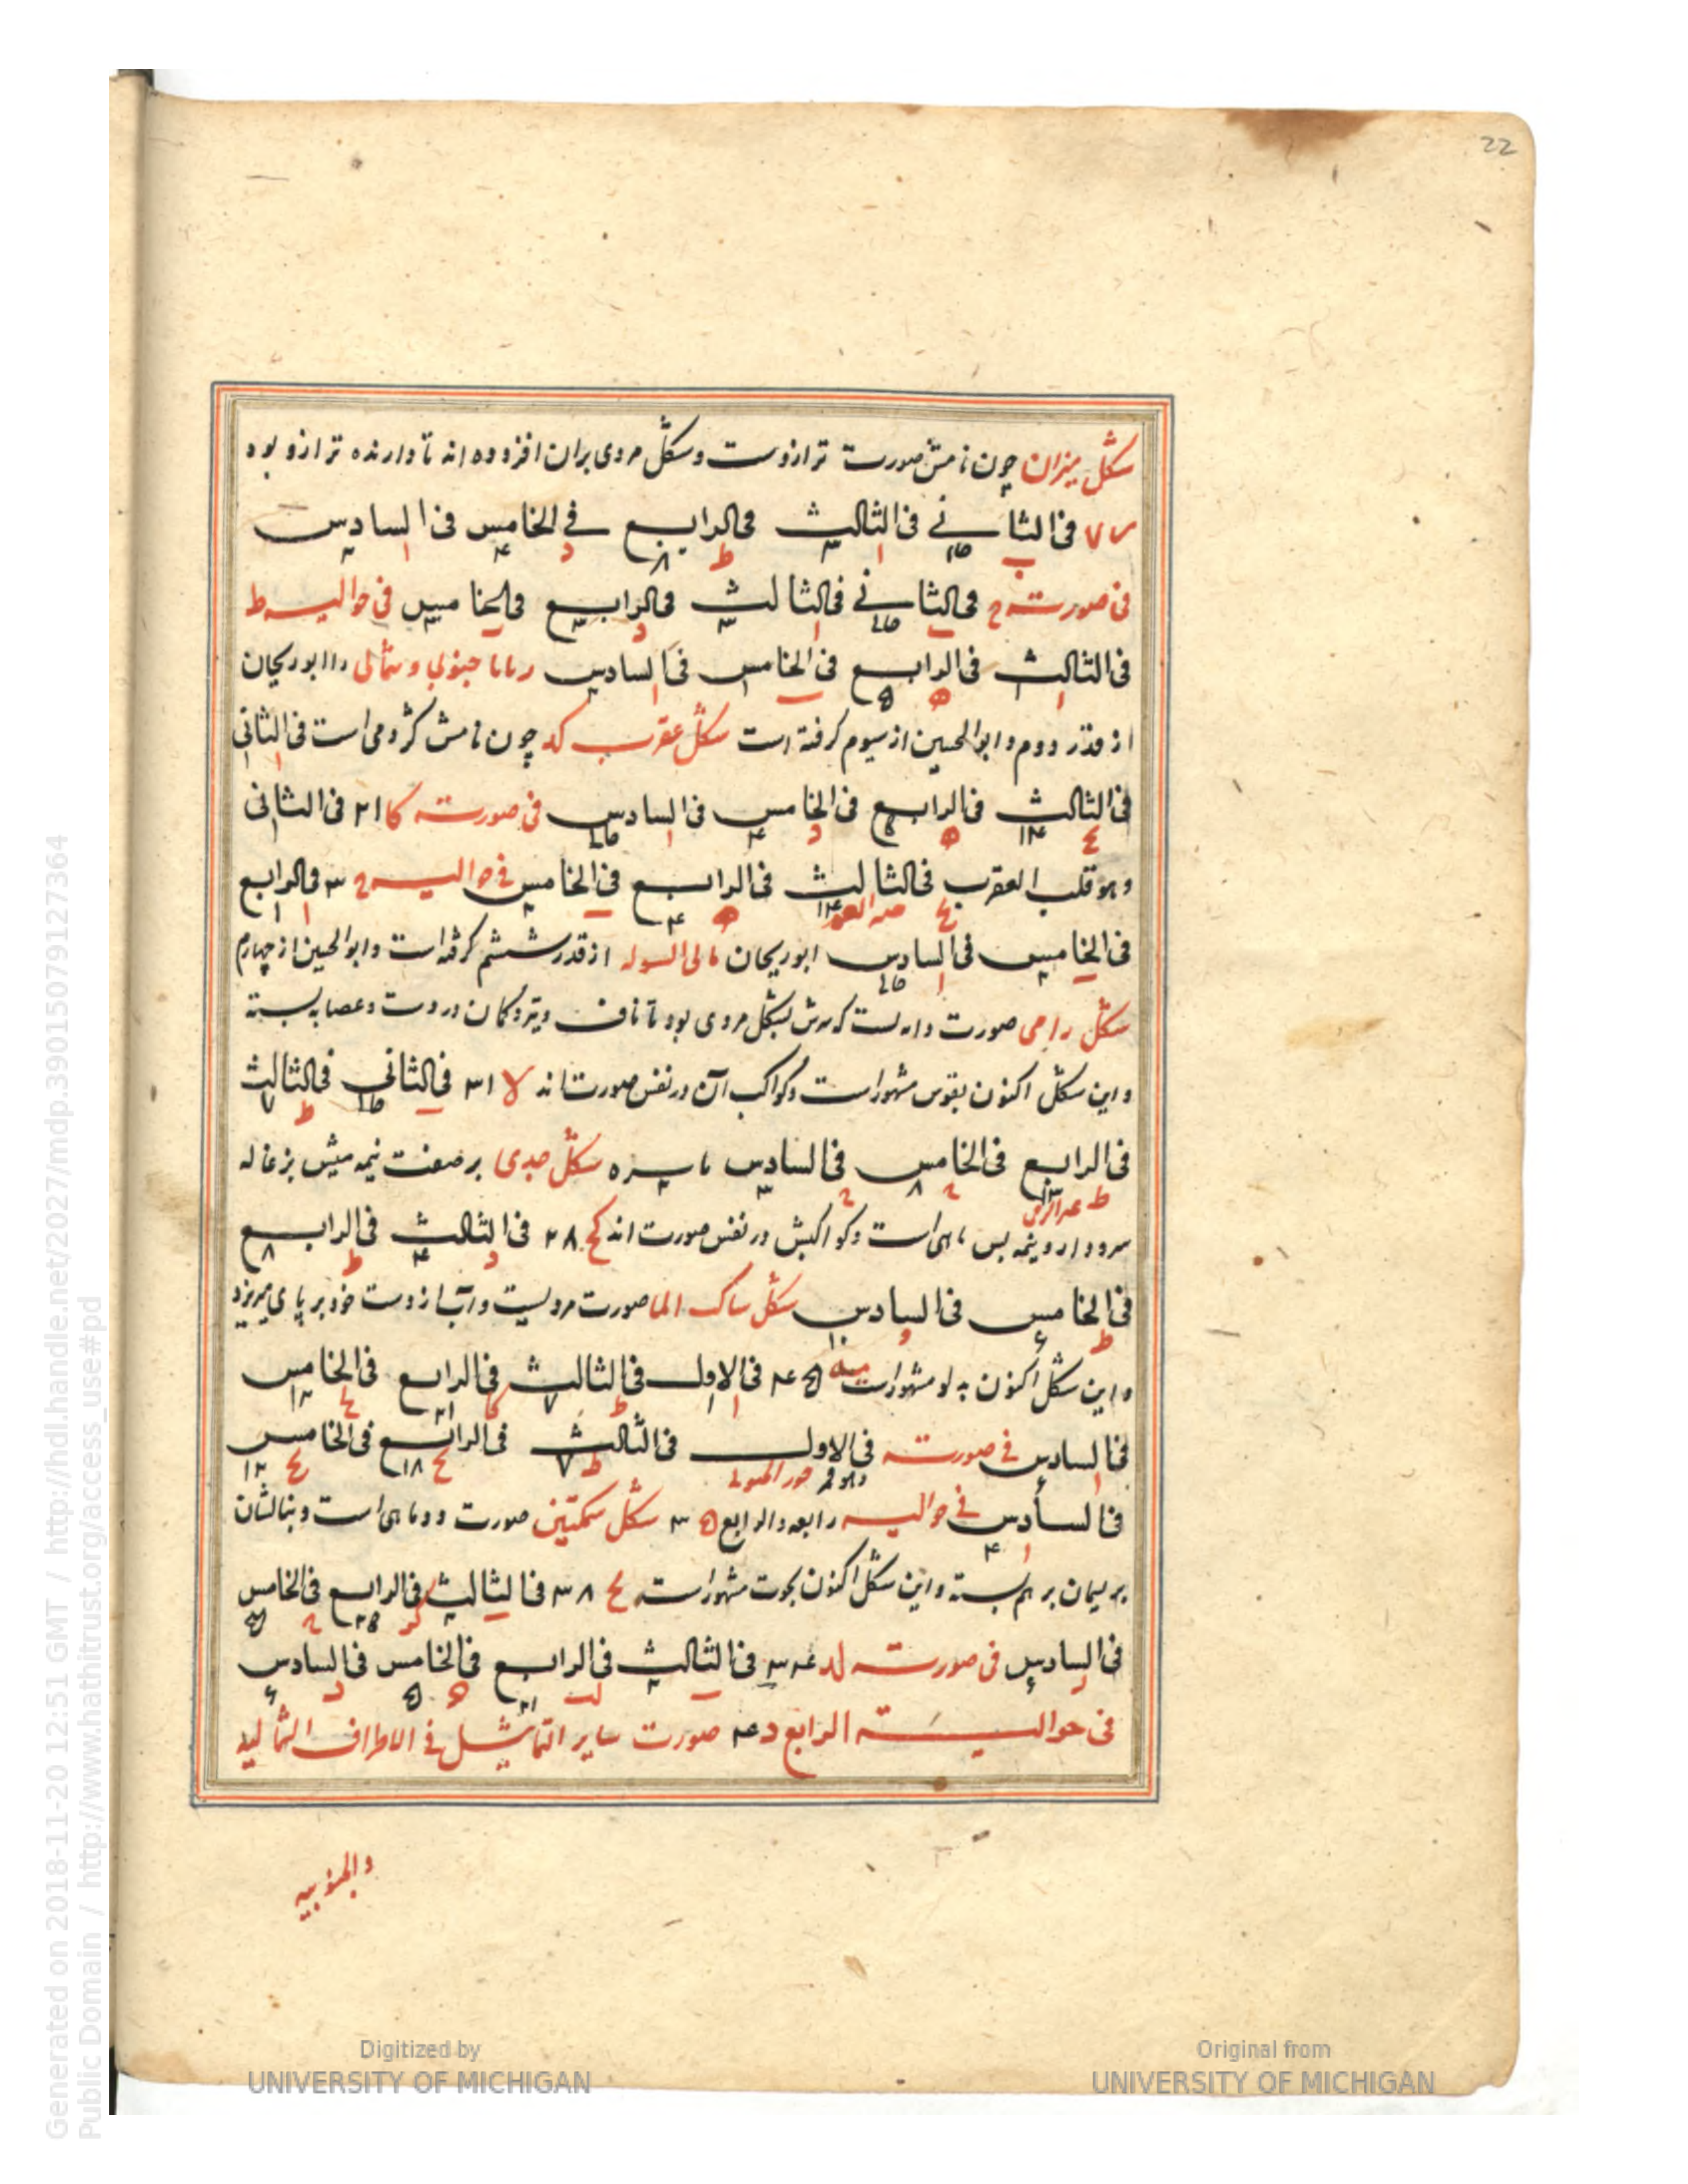 22
شکل میزان چون نامش صورت ترازوست و شکل مردی بران افزوده اند تا دارنده ترازو بود
فی الثانی فی الثالث فی الرابع فی الخامس فی السادس
فی صورته ح فی الثانی فی الثالث فی الرابع فی الخامس فی حوالیه ط
فی الثالث فی الرابع فی الخامس فی السادس زبانا جنوبی و شمالی را ابوریحان
از قدر دوم و ابوالحسین از سیوم گرفته است شکل عقرب کد چون نامش کژدمی است فی الثانی
فی الثالث فی الرابع فی الخامس فی السادس فی صورته کا ۲۱ فی الثانی
وهو قلب العقرب فی الثالث فی الرابع فی الخامس فی حوالیه ج ۳ فی الرابع
فی الخامس فی السادس ابوریحان تالی الشوله از قدر ششم گرفته است و ابوالحسین از چهارم
شکل رامی صورت دابه است که سرش بشکل مردی بود تا ناف و تیر و کمان در دست و عصابه بسته
و این شکل اکنون بقوس مشهور است و کواکب آن در نفس صورت اند لا ۳۱ فی الثانی فی الثالث
فی الرابع فی الخامس فی السادس شکل جدی بر صفت نیمه پیش بزغاله
سر و دارد و نیمه پس ماهی است و کواکبش در نفس صورت اند کح ۲۸ فی الثالث فی الرابع
فی الخامس فی السادس شکل ساکب الما صورت مردیست و آب از دست خود بر پای میریزد
و این شکل اکنون بدلو مشهور است مه ۴۵ فی الاول فی الثالث فی الرابع فی الخامس
فی السادس فی صورته فی الاول فی الثالث فی الرابع فی الخامس
فی السادس فی حوالیه رابعه و الرابع ۳ شکل سمکتین صورت دو ماهی است و بنالشان
بریسمان بر هم بسته و این شکل اکنون بحوت مشهور است لح ۳۸ فی الثالث فی الرابع فی الخامس
فی السادس فی صورته لد ۳۴ فی الثالث فی الرابع فی الخامس فی السادس
فی حوالیته الرابع د ۴ صورت سایر التماثیل فی الاطراف الشمالیه
والجنوبیه
Generated on 2018-11-20 12:51 GMT / http://hdl.handle.net/2027/mdp.39015079127364
Public Domain / http://www.hathitrust.org/access_use#pd
Digitized by
UNIVERSITY OF MICHIGAN
Original from
UNIVERSITY OF MICHIGAN